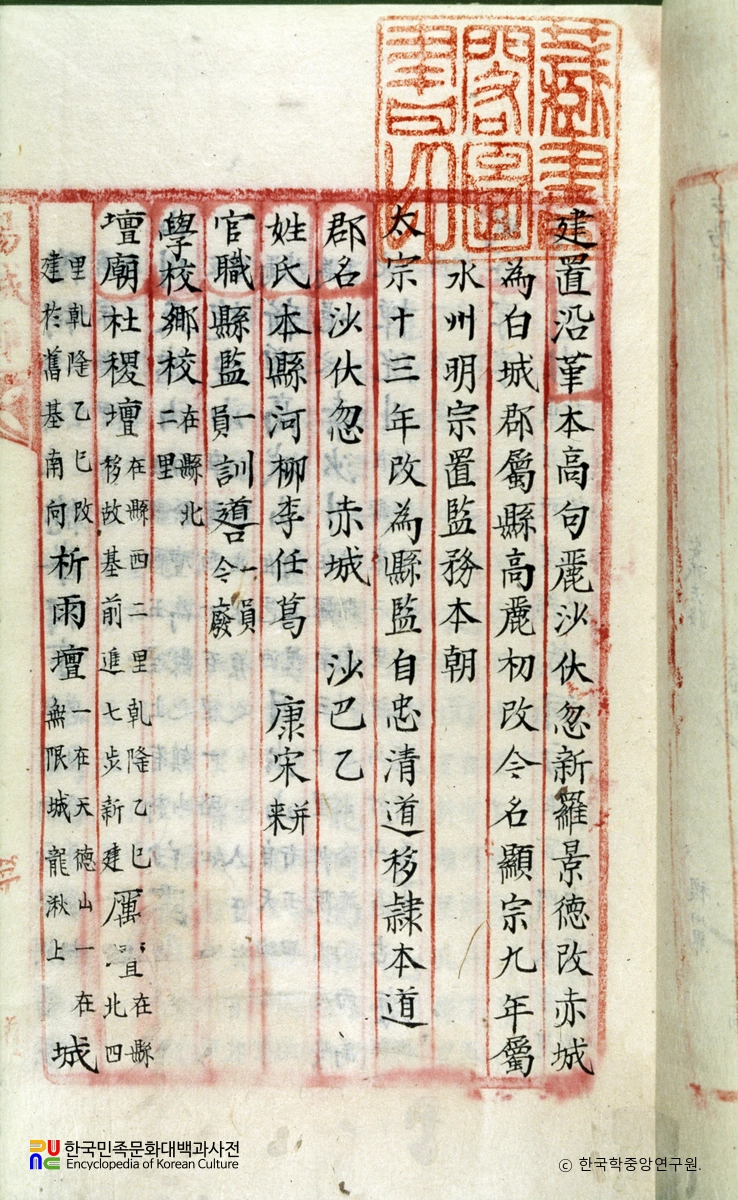 建置沿革本高句麗沙伏忽新羅景德改赤城
為白城郡屬縣高麗初改今名顯宗九年屬
水州明宗置監務本朝
太宗十三年改為縣監自忠清道移隷本道
郡名沙伏忽 赤城 沙巴乙
姓氏本縣河柳李任葛 康宋并來
官職縣監一員訓導一員今廢
學校鄉校在縣北二里
壇廟社稷壇在縣西二里乾隆乙巳移故基前進七步新建厲在縣北四
里乾隆乙巳改建於舊基南向祈雨壇一在天德山一在無限城龍湫上城
한국민족문화대백과사전
Encyclopedia of Korean Culture
ⓒ 한국학중앙연구원.